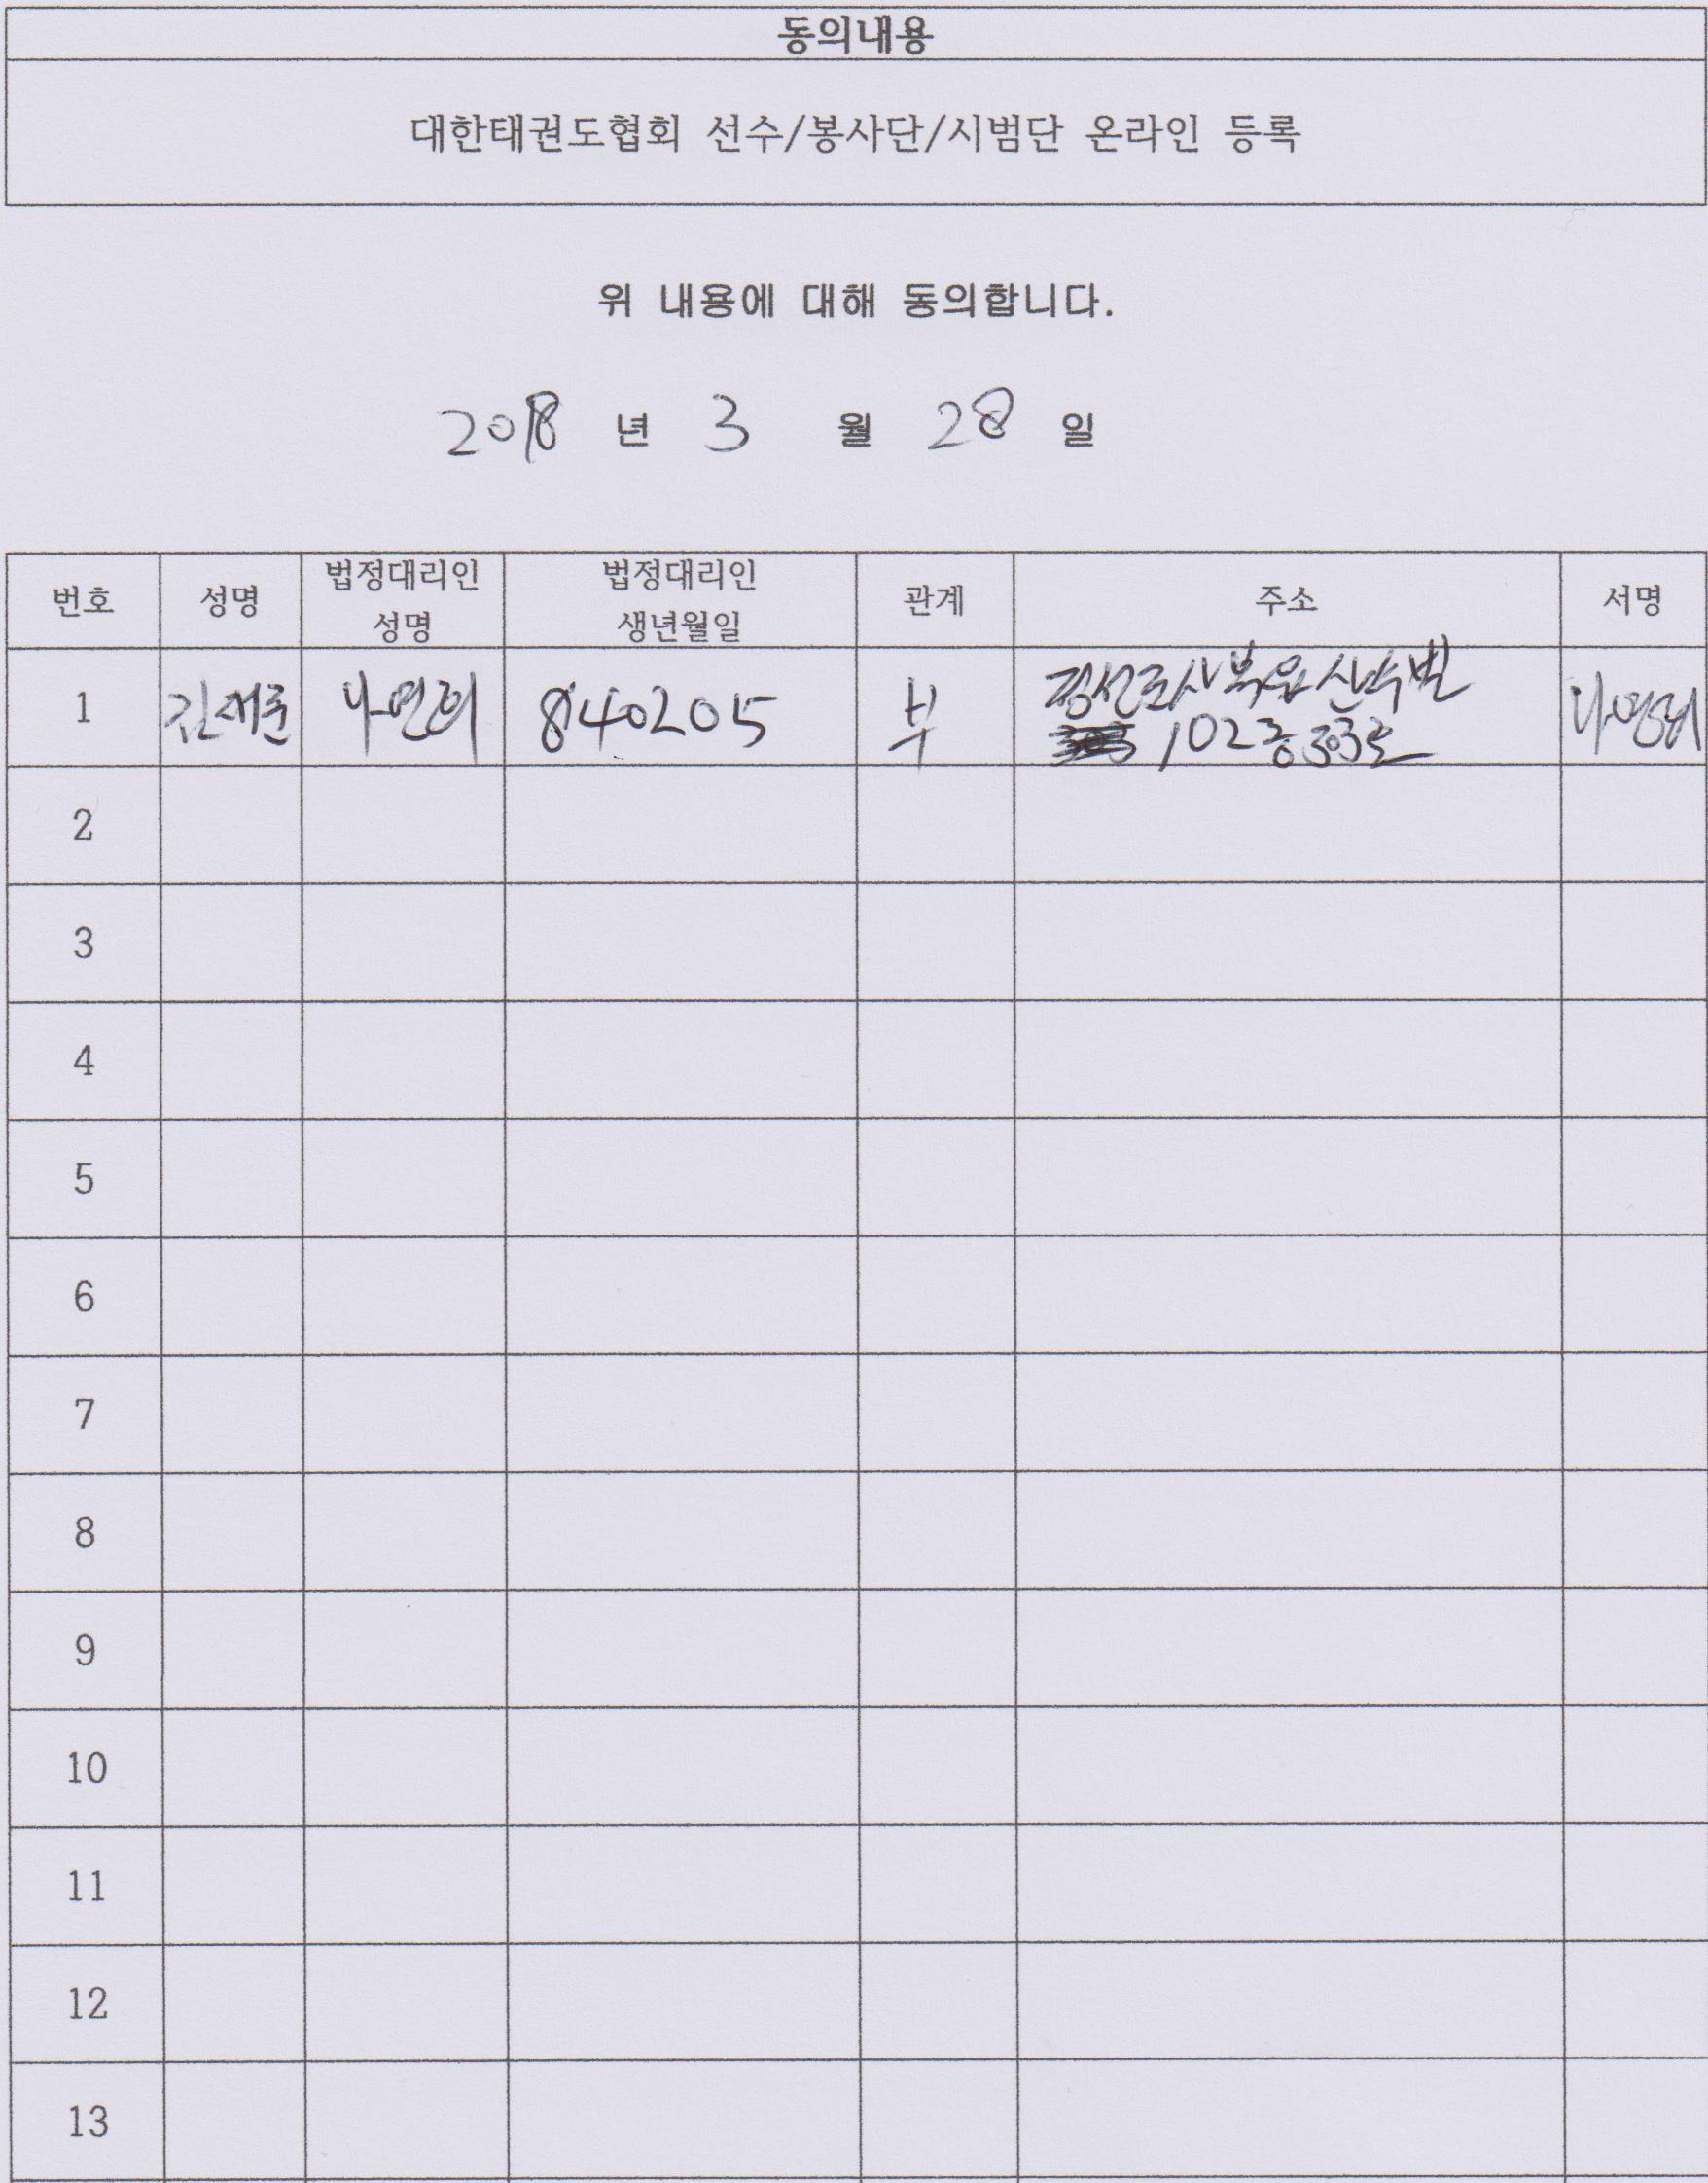 동의내용
대한태권도협회 선수/봉사단/시범단 온라인 등록
위 내용에 대해 동의합니다.
2018 년 3 월 28 일
번호 성명 법정대리인 성명 법정대리인 생년월일 관계 주소 서명
1 김재준 나연희 840205 부 정선군사북읍
102동 303호
2
3
4
5
6
7
8
9
10
11
12
13